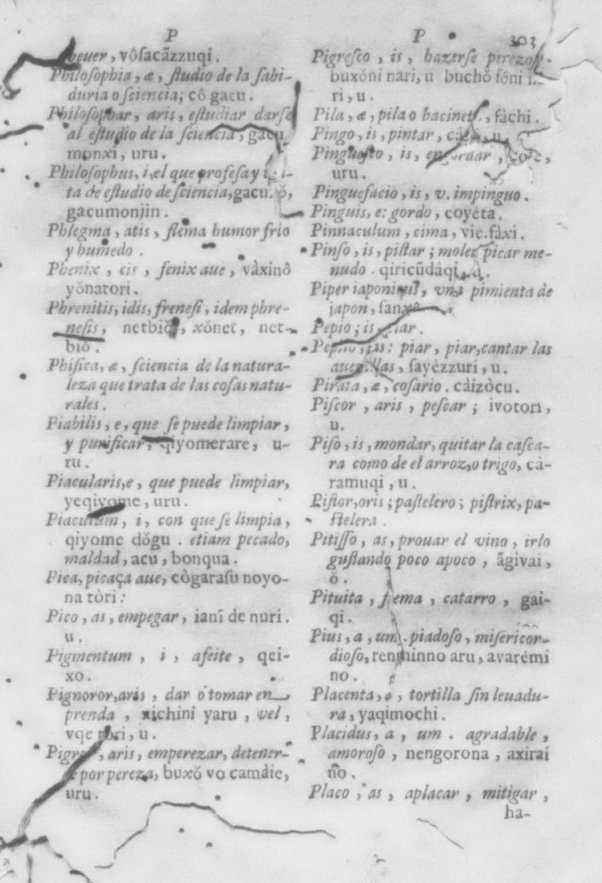 P
P 303
vôsacãzzuqi.
Philosophia, æ, studio de la sabi-
duria o sciencia; cô gacu.
Philosophar, aris, estudiar darse
al estudio de la sciencia, gacu
monxi, uru.
Philosophus, i, el que profesa y
ta de estudio de sciencia, gacu.
gacumonjin.
Phlegma, atis, flema humor frio
y humedo.
Phenix, cis, fenix aue, vàxinô
yŏnatori.
Phrenitis, idis, frenesi, idem phre-
nesis, xŏnet, net-
biŏ.
Phisica, æ, sciencia de la natura-
leza que trata de las cosas natu-
rales.
Piabilis, e, que se puede limpiar,
y purificar, qiyomerare, u-
ru.
Piacularis, e, que puede limpiar,
yeqiyome, uru.
Piaculum, i, con que se limpia,
qiyome dŏgu. etiam pecado,
maldad, acu, bonqua.
Pica, picaça aue, côgarasu noyo-
na tòri:
Pico, as, empegar, ianĩ de nuri.
u.
Pigmentum, i, afeite, qei-
xo.
Pignoror, aris, dar o tomar en
prenda, xichini yaru, vel,
vqe tori, u.
aris, emperezar, detener-
por pereza, buxŏ vo camâie,
uru.
Pigresco, is, hazerse perezo
buxóni nari, u buchŏ
ri, u.
Pila, æ, pila o bacinete, fàchi.
Pingo, is, pintar, u.
is,
uru.
Pinguefacio, is, v. impinguo.
Pinguis, e: gordo, coyéta.
Pinnaculum, cima, vie.fàxi.
Pinso, is, pistar; moler picar me-
nudo. qiricũdàqi,
Piper iaponicus, vna pimienta de
japon,
Pepio; is,
piar, piar, cantar las
sayèzzuri, u.
Pirata, æ, cosario. cáizòcu.
Piscor, aris, pescar; ivotori,
u.
Piso, is, mondar, quitar la casca-
ra como de el arroz, o trigo, cà-
ramuqi, u.
Pistor, oris; pastelero; pistrix, pa-
stelera.
Pitisso, as, prouar el vino, irlo
gustando poco apoco, ãgivai,
ŏ.
Pituita, flema, catarro, gai-
qi.
Pius, a, um. piadoso, misericor-
dioso, renminno aru, avarémi
no.
Placenta, tortilla sin leuadu-
ra, yaqimochi.
Placidus, a, um. agradable,
amoroso, nengorona, axirai
ño.
Placo, as, aplacar, mitigar,
ha-